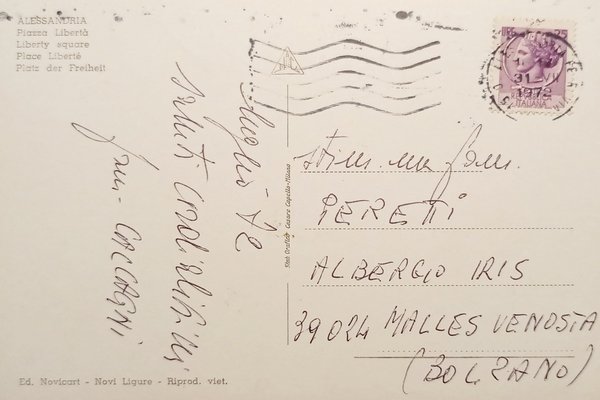 ALESSANDRIA
Piazza Libertà
Liberty square
Place Liberté
Platz der Freiheit
Luglio 72
saluti cordialissimi
fam. CACCAGNI
Stab. Grafico Cesare Capello - Milano
31 VII
1972
ITALIANA
Stim. ma fam.
PERETTI
ALBERGIO IRIS
39024 MALLES VENOSTA
(BOLZANO)
Ed. Novicart - Novi Ligure - Riprod. viet.